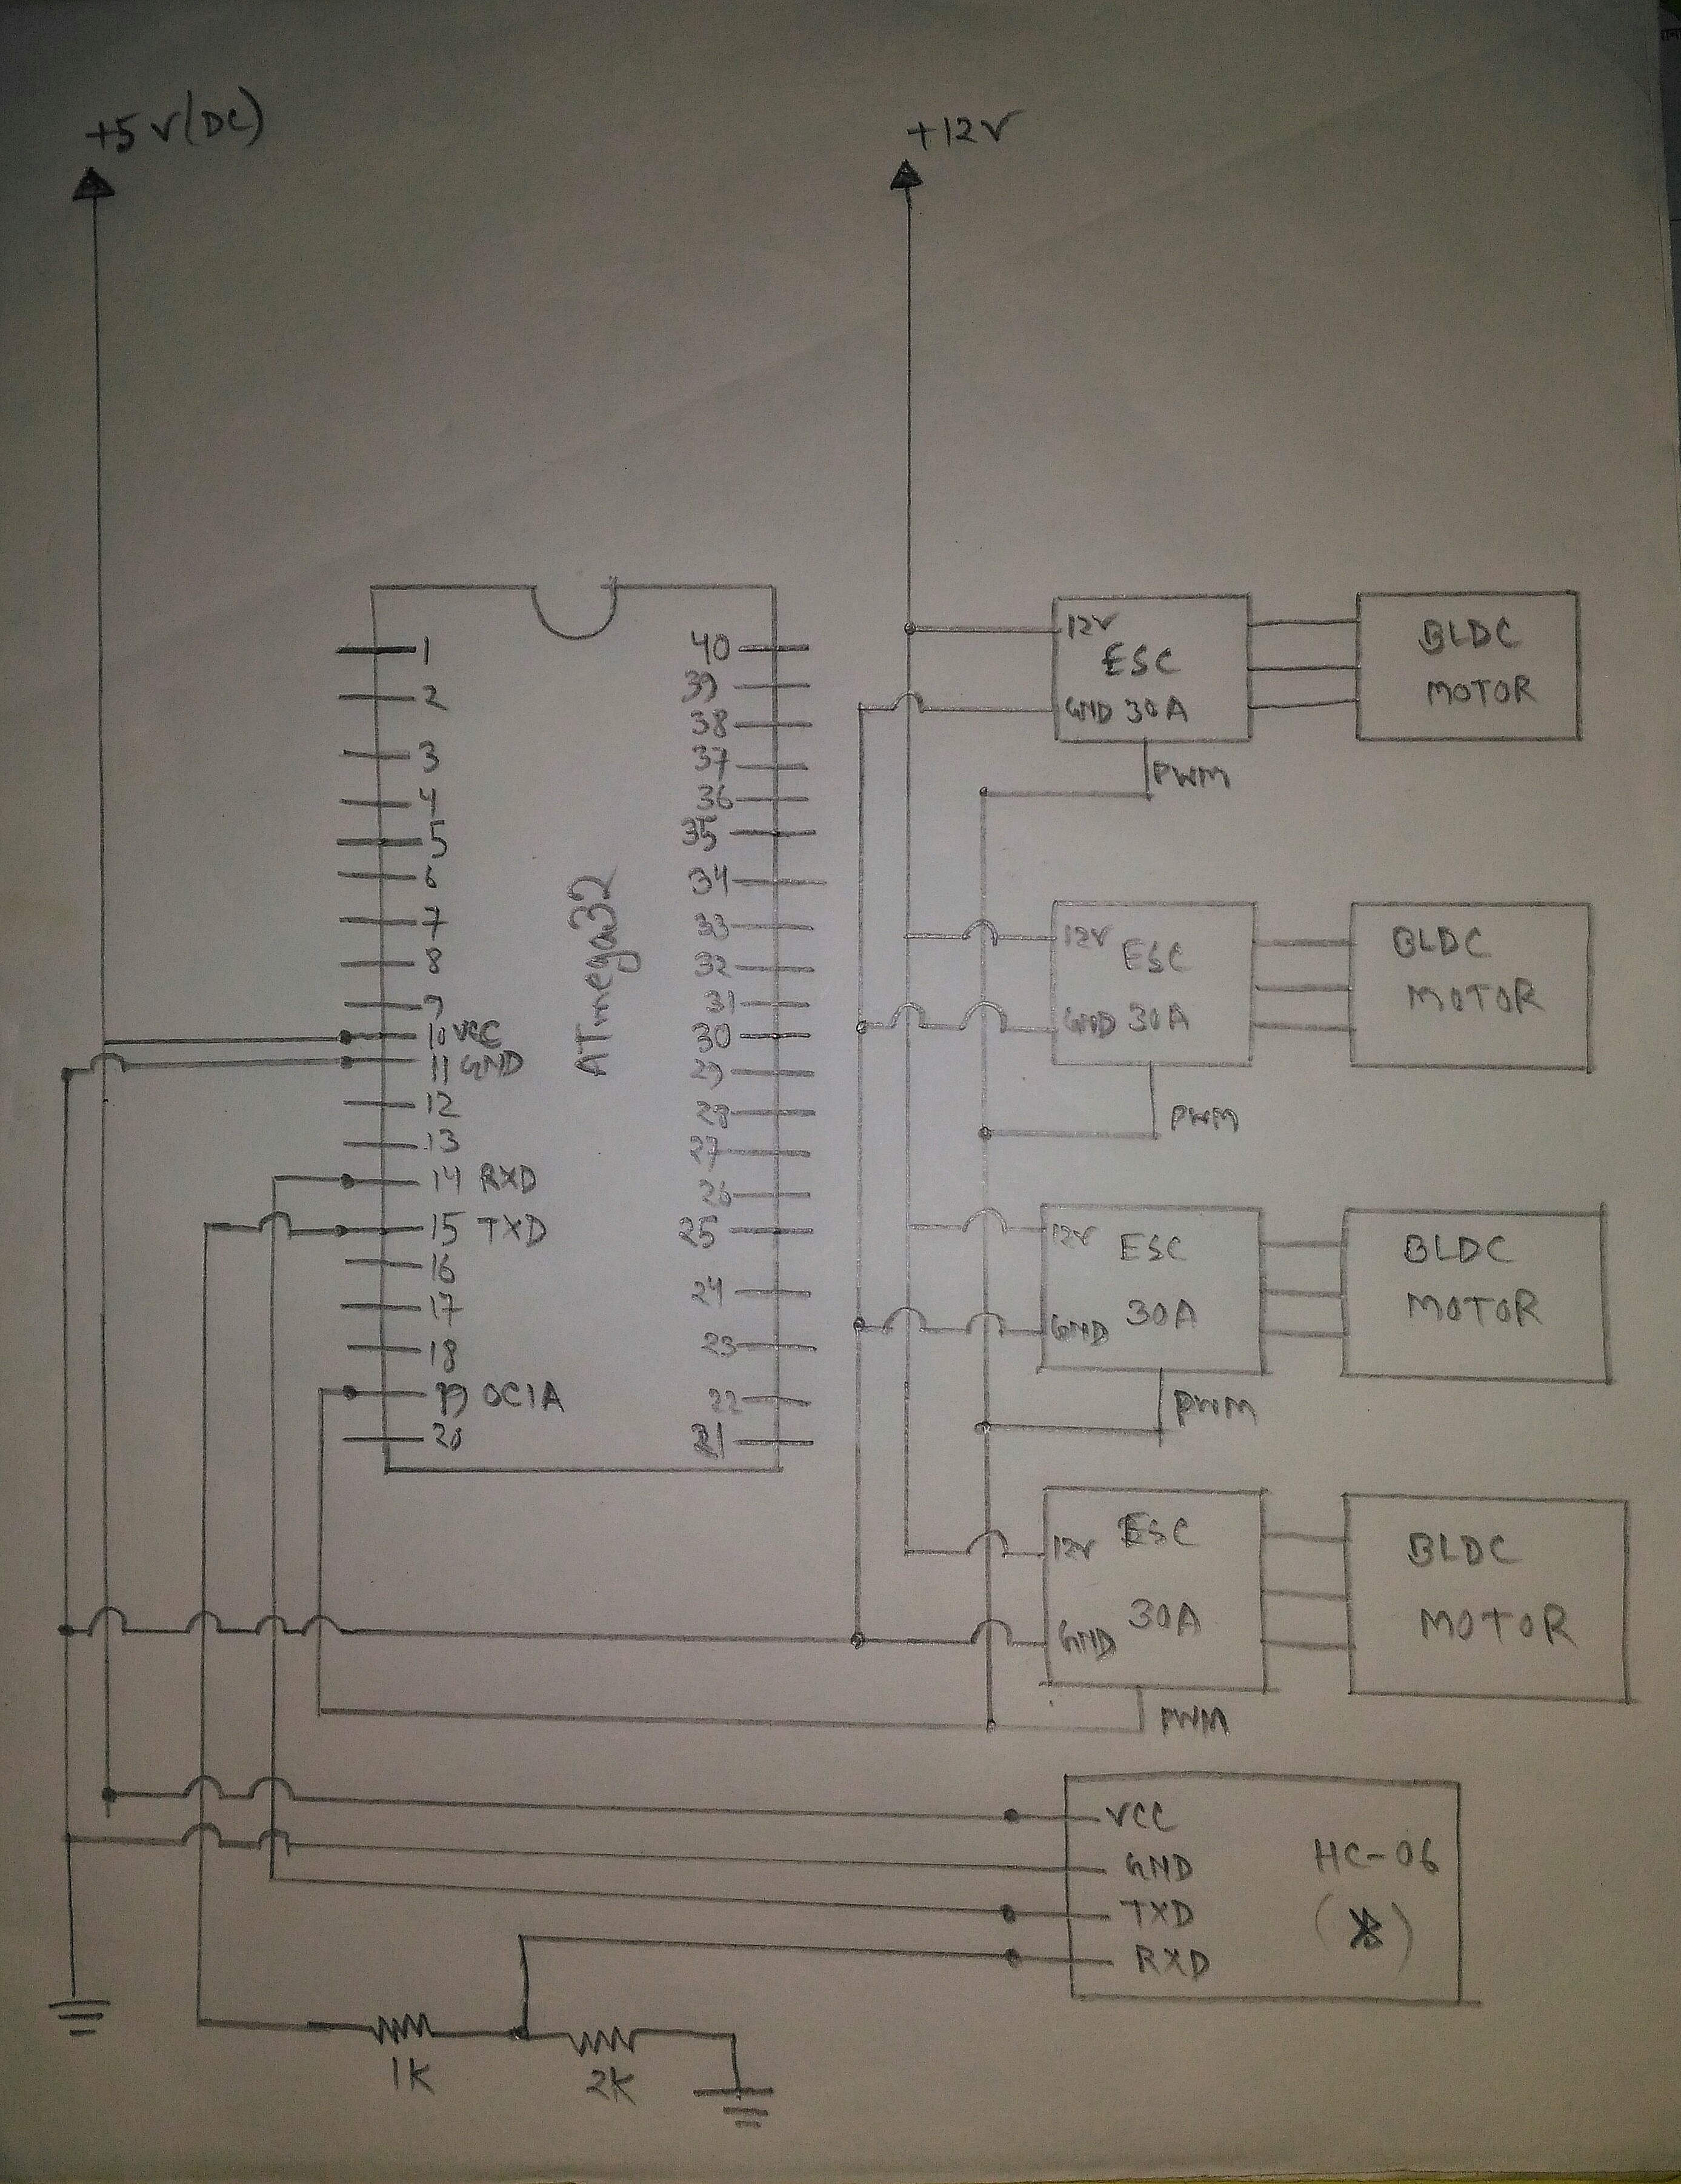 +5V(DC)
+12V
1
2
3
4
5
6
7
8
9
10 VCC
11 GND
12
13
14 RXD
15 TXD
16
17
18
19 OC1A
20
ATmega32
40
39
38
37
36
35
34
33
32
31
30
29
28
27
26
25
24
23
22
21
12V
ESC
GND 30A
PWM
BLDC
MOTOR
12V
ESC
GND 30A
PWM
BLDC
MOTOR
12V
ESC
30A
GND
PWM
BLDC
MOTOR
12V
ESC
30A
GND
PWM
BLDC
MOTOR
VCC
GND
TXD
RXD
HC-06
1K
2K